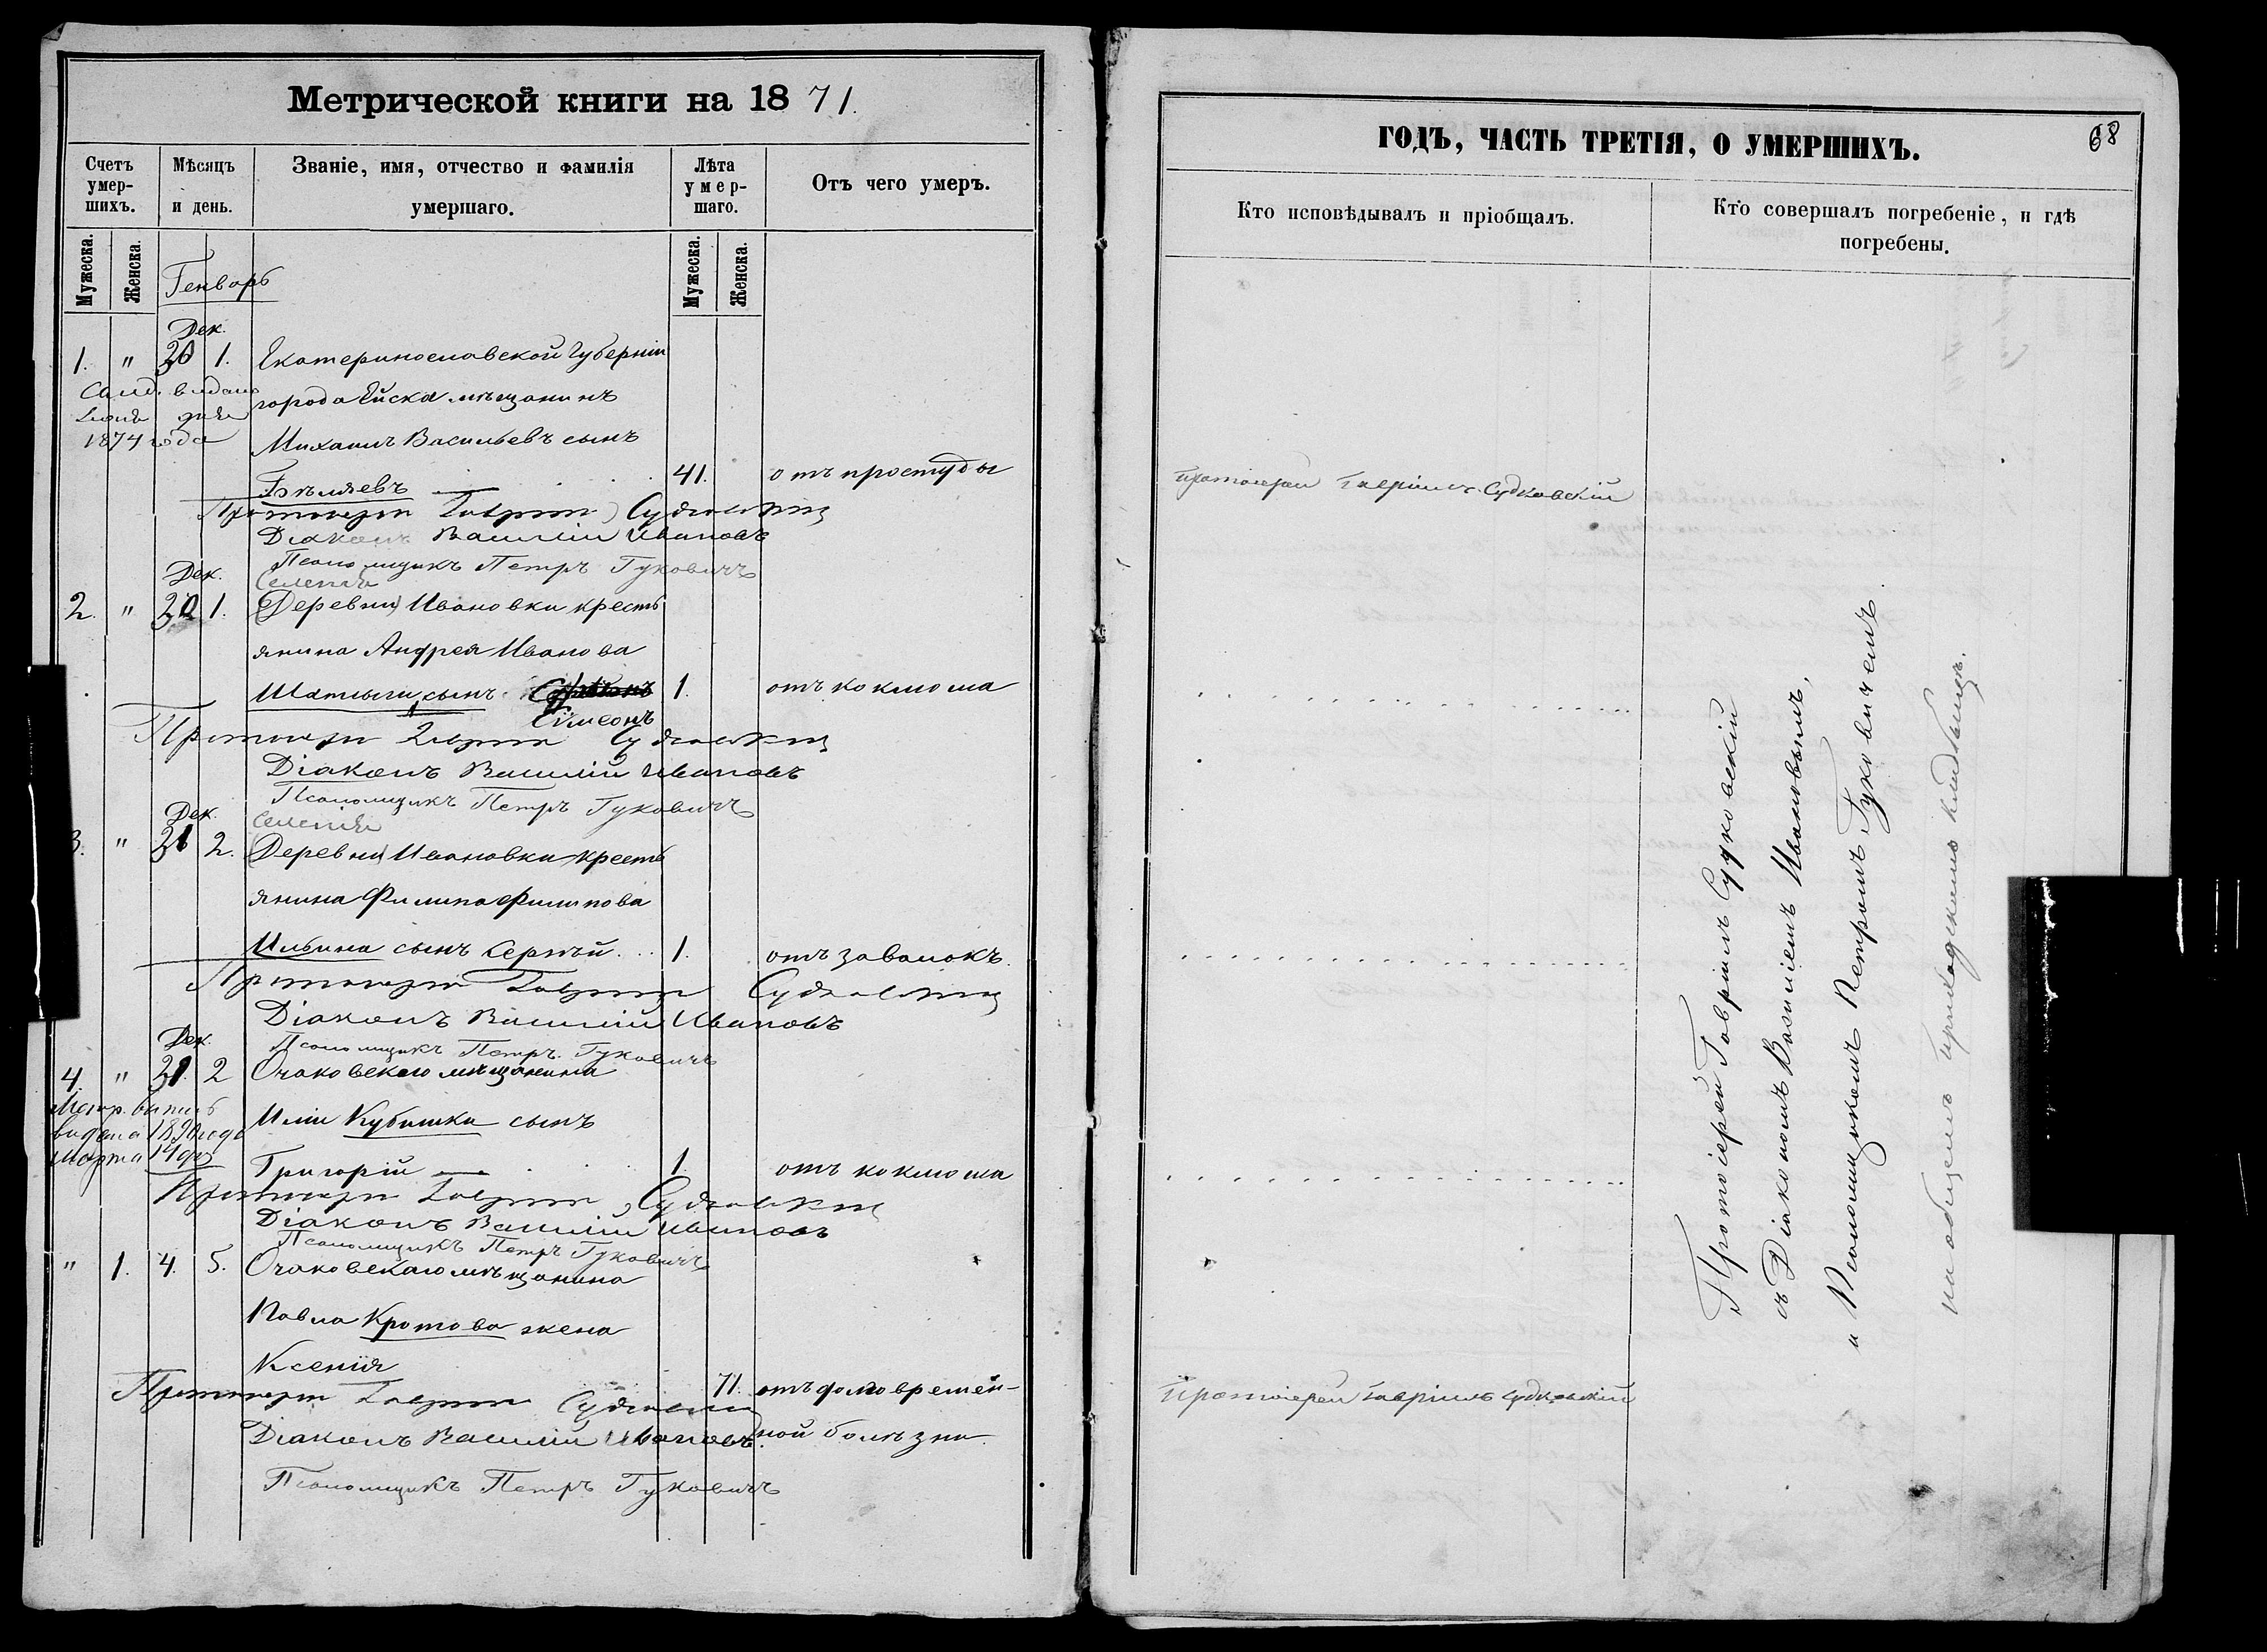 Метрической книги на 1871.
Счетъ умер-шихъ.
Мѣсяцъ и день.
Званіе, имя, отчество и фамилія умершаго.
Лѣта умер-шаго.
Отъ чего умеръ.
Мужеска.
Женска.
Генварь
Мужеска.
Женска.
Дек.
1. " 30 1. Екатеринославской Губерніи
города Ейска мѣщанинъ
1874 года
Михаилъ Васильевъ сынъ
Бѣляевъ 41. отъ простуды
Протоіерей Гавріилъ Судковскій
Діаконъ Василій Ивановъ
Псаломщикъ Петръ Гуковичъ
Дек. Селенія
2. " 30 1. Деревни Ивановки кресть
янина Андрея Иванова
сынъ 1. отъ коклюша
Сѵмеонъ
Протоіерей Гавріилъ Судковскій
Діаконъ Василій Ивановъ
Псаломщикъ Петръ Гуковичъ
Дек. Селенія
3. " 31 2. Деревни Ивановки кресть
янина Филипа Филипова
Ильина сынъ Сергѣй... 1. отъ завалокъ.
Протоіерей Гавріилъ Судковскій
Діаконъ Василій Ивановъ
Дек. Псаломщикъ Петръ Гуковичъ
4. " 31. 2 Очаковскаго мѣщанина
Метр. выпись
Иліи Кубишки сынъ
видана 1890 года
марта 14 дня
Григорій 1. отъ коклюша
Протоіерей Гавріилъ Судковскій
Діаконъ Василій Ивановъ
Псаломщикъ Петръ Гуковичъ
" 1. 4. 5. Очаковскаго мѣщанина
Павла Кротова жена
Ксенія
71. отъ долговремен-
Протоіерей Гавріилъ Судковскій
Діаконъ Василій Ивановъ
ной болѣзни.
Псаломщикъ Петръ Гуковичъ
ГОДЪ, ЧАСТЬ ТРЕТІЯ, О УМЕРШИХЪ.
68
Кто исповѣдывалъ и пріобщалъ.
Кто совершалъ погребеніе, и гдѣ погребены.
Протоіерей Гавріилъ Судковскій
Протоіерей Гавріилъ Судковскій
Протоіерей Гавріилъ Судковскій
съ Діакономъ Василіемъ Ивановымъ,
и Псаломщикомъ Петромъ Гуковичемъ
на общемъ приходскомъ кладбищѣ.